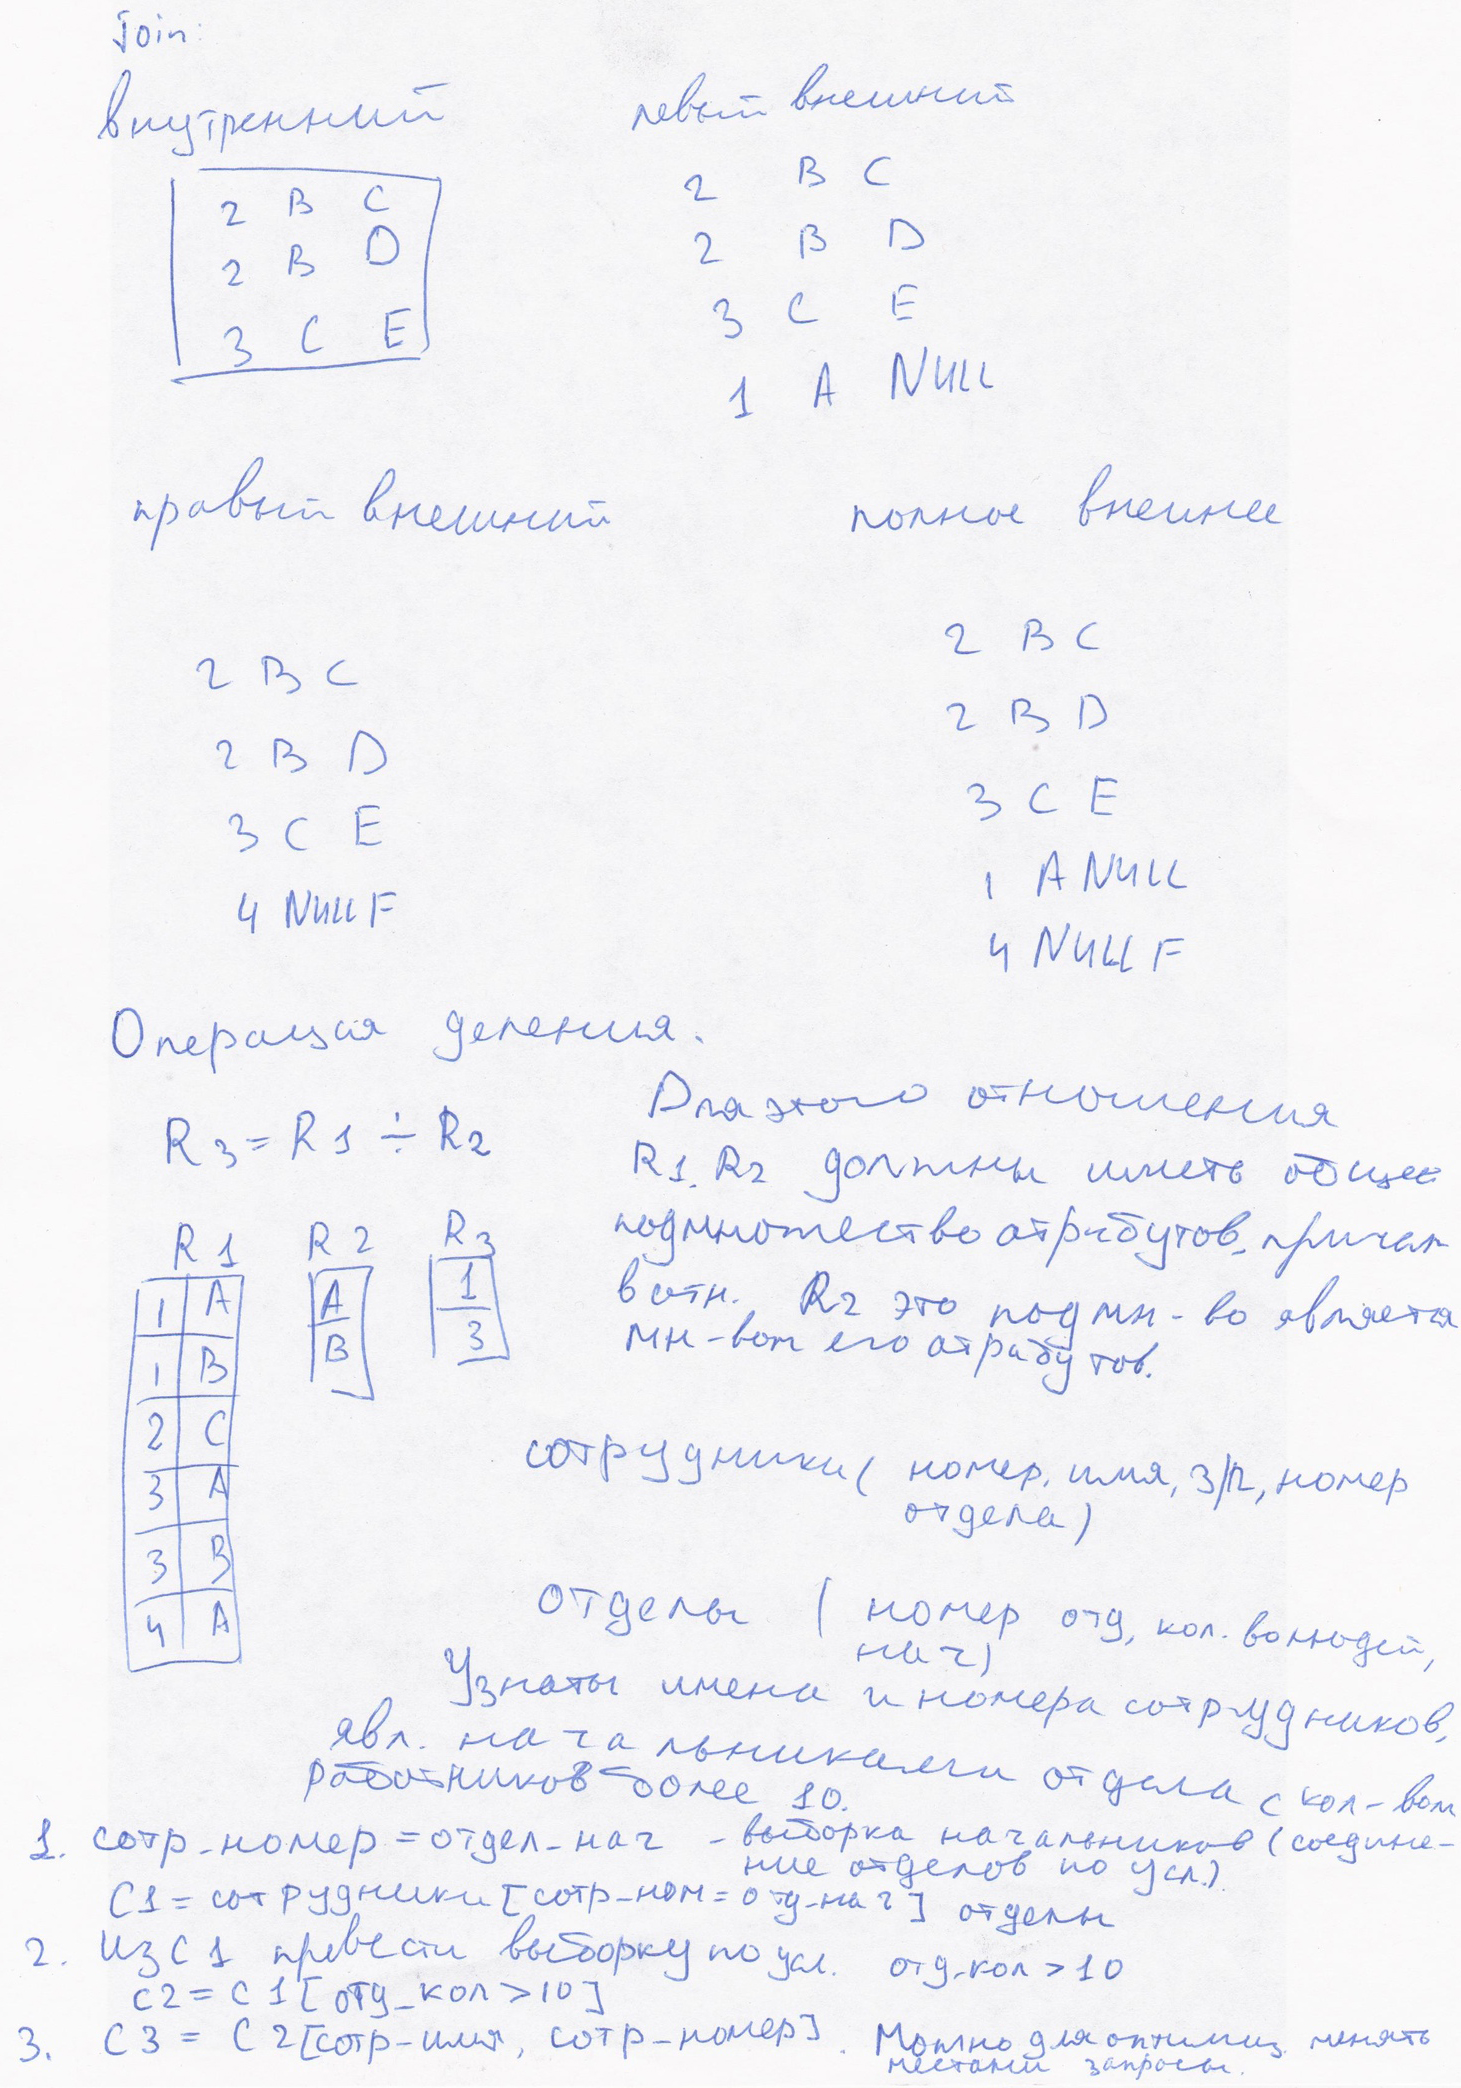 Join:
внутренний
2 B C
2 B D
3 C E
левый внешний
2 B C
2 B D
3 C E
1 A NULL
правый внешний
2 B C
2 B D
3 C E
4 NULL F
полное внешнее
2 B C
2 B D
3 C E
1 A NULL
4 NULL F
Операция деления.
R3 = R1 ÷ R2
Для этого отношения
R1, R2 должны иметь общее
подмножество атрибутов, причем
в отн. R2 это подмн-во является
мн-вом его атрибутов.
R1
1 A
1 B
2 C
3 A
3 B
4 A
R2
A
B
R3
1
3
сотрудники (номер, имя, з/п, номер
отдела)
отделы (номер отд, кол. во людей,
нач)
Узнать имена и номера сотрудников,
явл. начальниками отдела с кол-вом
работников более 10.
1. сотр_номер = отдел_нач - выборка начальников (соедине-
ние отделов по усл.)
C1 = сотрудники [сотр_ном = отд_нач] отделы
2. Из C1 првести выборку по усл. отд_кол > 10
C2 = C1 [отд_кол > 10]
3. C3 = C2 [сотр_имя, сотр_номер]. Можно для оптимиз. менять
местами запросы.